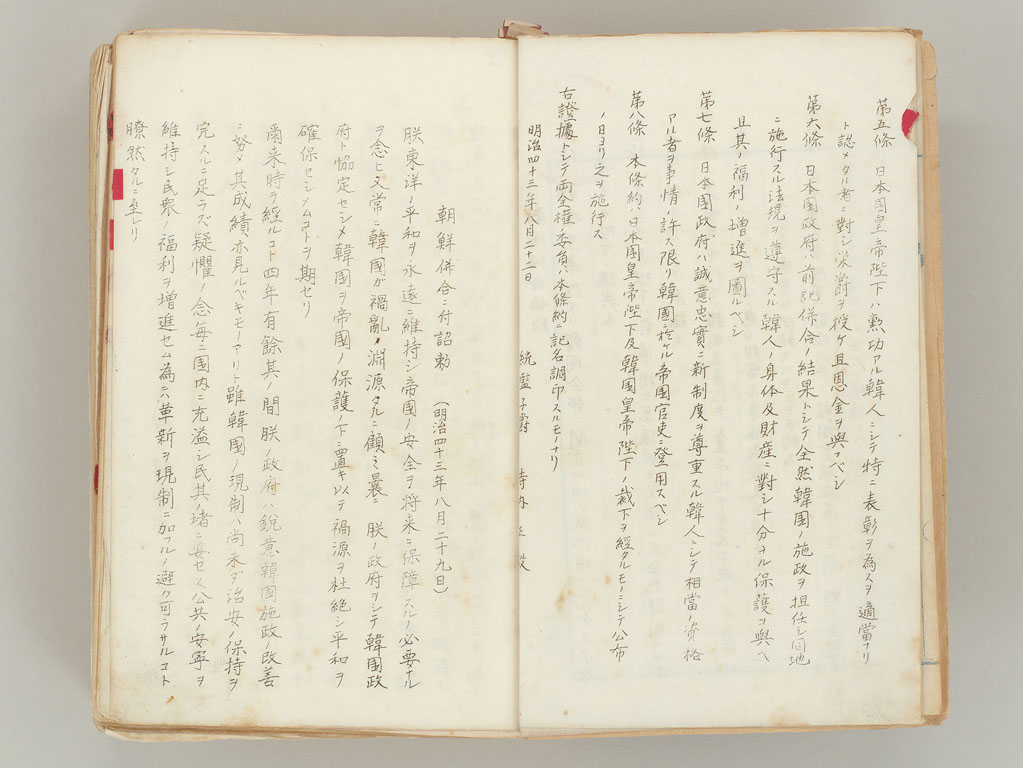 第五條 日本國皇帝陛下ハ勲功アル韓人ニシテ特ニ表彰ヲ為スヲ適當ナリ
ト認メタル者ニ對シ栄爵ヲ授ケ且恩金ヲ與フベシ
第六條 日本国政府ハ前記併合ノ結果トシテ全然韓國ノ施政ヲ担任シ同地
ニ施行スル法規ヲ遵守スル韓人ノ身体及財産ニ對シ十分ナル保護ヲ與ヘ
且其ノ福利ノ増進ヲ圖ルベシ
第七條 日本國政府ハ誠意忠實ニ新制度ヲ尊重スル韓人ニシテ相當ノ資格
アル者ヲ事情ノ許ス限リ韓國ニ於ケル帝國官吏ニ登用スベシ
第八條 本條約ハ日本国皇帝陛下及韓国皇帝陛下ノ裁下ヲ經タルモノニシテ公布
ノ日ヨリ之ヲ施行ス
右證據トシテ両全權委員ハ本條約ニ記名調印スルモノナリ
明治四十三年八月二十二日
統監子爵 寺内正毅
朝鮮併合ニ付詔勅 (明治四十三年八月二十九日)
朕東洋ノ平和ヲ永遠ニ維持シ帝國ノ安全ヲ将来ニ保障スルノ必要ナル
ヲ念ヒ又常ニ韓國ガ禍亂ノ淵源タルニ顧ミ曩ニ 朕ノ政府ヲシテ韓國政
府ト協定セシメ韓國ヲ帝國ノ保護ノ下ニ置キ以テ禍源ヲ杜絶シ平和ヲ
確保セシメムコトヲ期セリ
爾来時ヲ經ルコト四年有餘其ノ間朕ノ政府ハ銳意韓國施政ノ改善
ニ努メ其成績亦見ルベキモノアリト雖韓國ノ現制ハ尚未ダ治安ノ保持ヲ
完スルニ足ラズ疑懼ノ念毎ニ国内ニ充溢シ民其ノ堵ニ安セス公共ノ安寧ヲ
維持シ民衆ノ福利ヲ増進セム為ニハ革新ヲ現制ニ加フルノ避ク可ラサルコト
瞭然タルニ至レリ